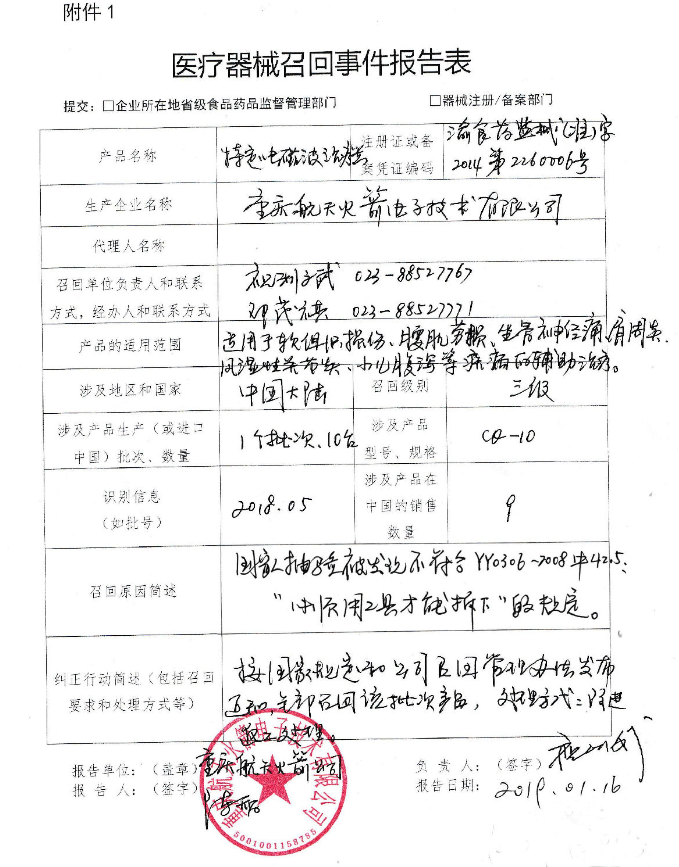 附件 1
医疗器械召回事件报告表
提交：□企业所在地省级食品药品监督管理部门 □器械注册/备案部门
产品名称 特定电磁波治疗器 注册证或备案凭证编码 渝食药监械(准)字
2014第2260006号
生产企业名称 重庆航天火箭电子技术有限公司
代理人名称
召回单位负责人和联系 023-88527767
方式，经办人和联系方式 023-88527771
产品的适用范围 适用于软组织损伤、腰肌劳损、坐骨神经痛、肩周炎、
风湿性关节炎、小儿腹泻等疾病的辅助治疗。
涉及地区和国家 中国大陆 召回级别 三级
涉及产品生产（或进口
中国）批次、数量 1个批次、10台 涉及产品
型号、规格 CQ-10
识别信息
（如批号） 2018.05 涉及产品在
中国的销售
数量 9
召回原因简述 国家抽验被发现不符合YY0306-2008中42.5：
"应用工具才能拆下"的规定。
纠正行动简述（包括召回
要求和处理方式等） 按国家规定和公司召回管理办法发布
通知，全部召回该批次产品，处理方式：
返工处理。
报告单位：（盖章） 重庆航天火箭公司
报告人：（签字）
负责人：（签字）
报告日期： 2019.01.16
5001001158755